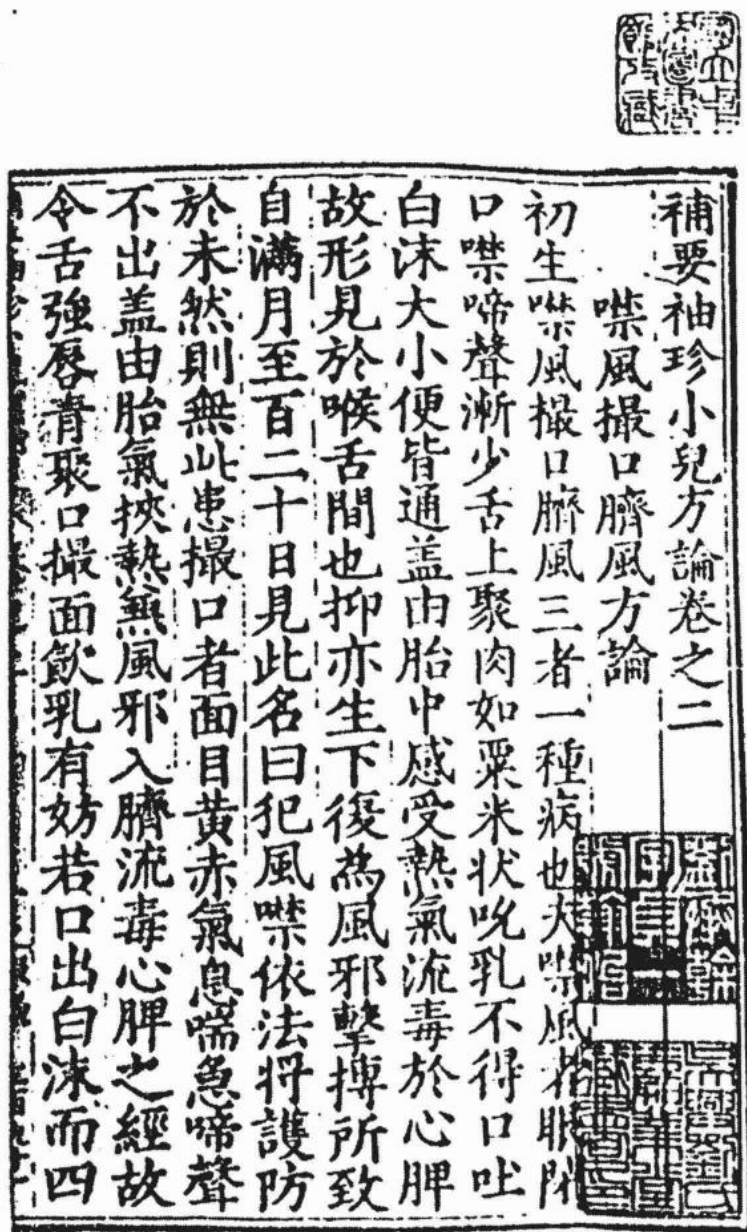 補要袖珍小兒方論卷之二
噤風撮口臍風方論
初生噤風撮口臍風三者一種病也夫噤風者眼閉
口噤啼聲漸少舌上聚肉如粟米状吮乳不得口吐
白沫大小便皆通盖由胎中感受熱氣流毒於心脾
故形見於喉舌間也抑亦生下復為風邪擊搏所致
自滿月至百二十日見此名曰犯風噤依法将護防
於未然則無此患撮口者面目黃赤氣息喘急啼聲
不出盖由胎氣挾熱無風邪入臍流毒心脾之經故
令舌強唇青聚口撮面飲乳有妨若口出白沫而四